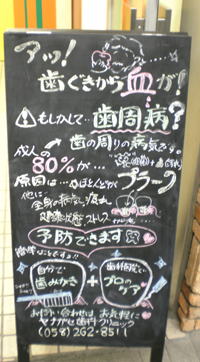 アッ!
歯ぐきから血が!
もしかして…歯周病?
歯の周りの病気です。
成人の
80%が…
原因は…ほとんどがプラーク
他に
全身の病気、疲れ
ストレス
予防できます
簡単なことです!!
自分で
歯みがき
+
歯科医院で
プロの
ケア
お問い合わせは お気軽に
ながせ歯科クリニック
(058)262-8511